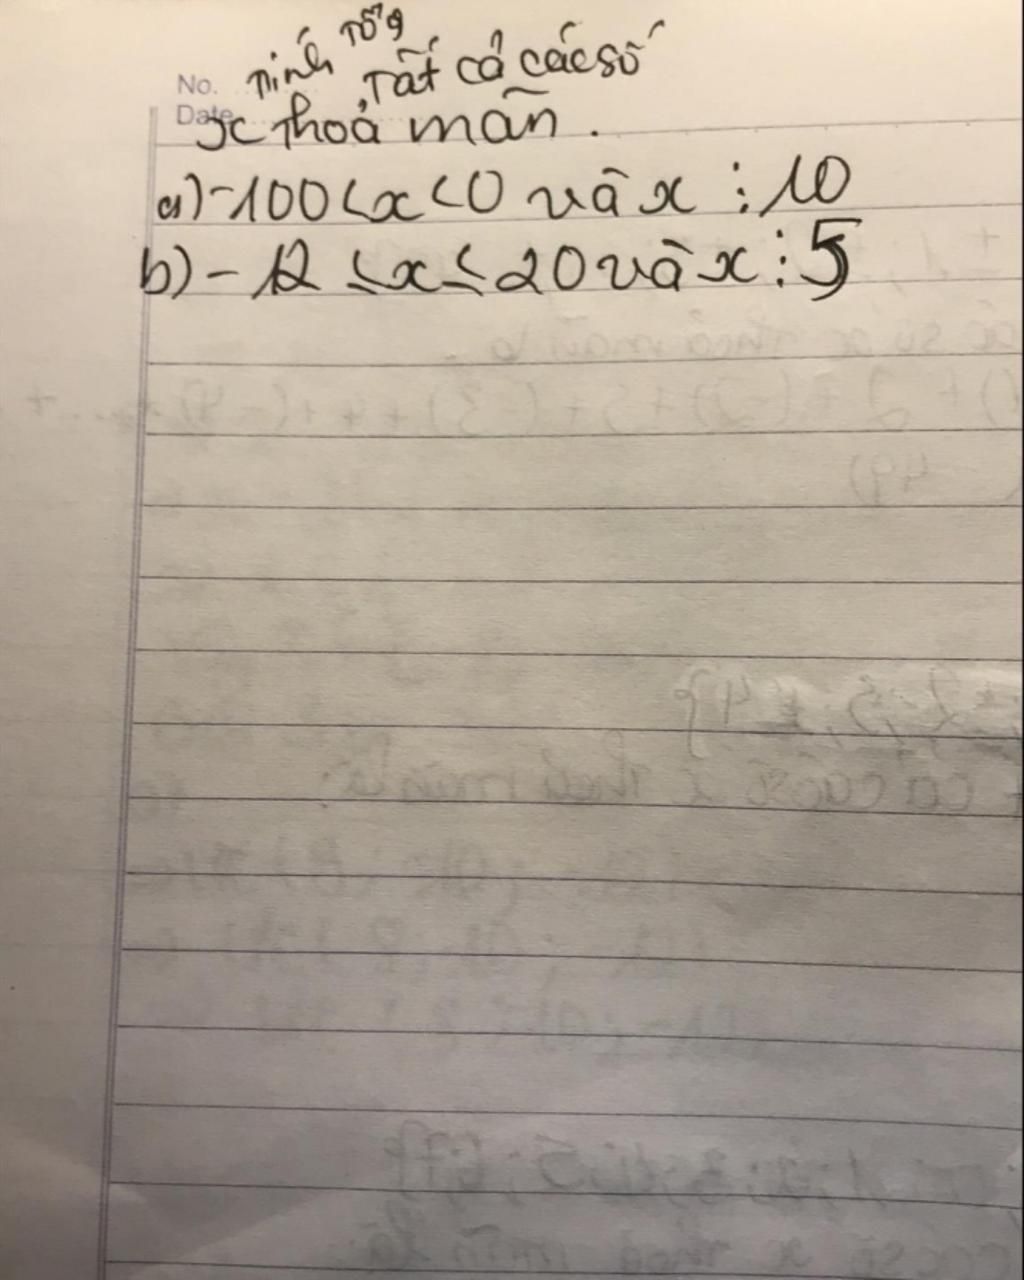 No. Tính Tổng
Tất cả các số
Date
x thoả mãn.
a) -100 < x < 0 và x ⋮ 10
b) - 12 ≤ x ≤ 20 và x ⋮ 5